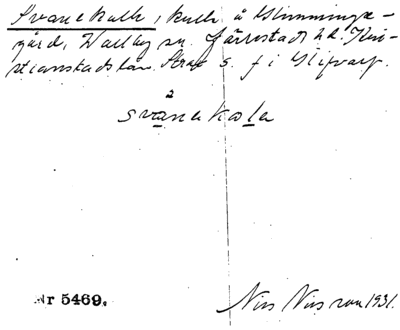 Svanekulle, kulle å Glimminge-
gård, Wallby sn. Järrestads hd. Kri-
stianstads län. Strax S. f i Glifvarp.
svanakola
Nr 5469.
Nils Nilsson 1931.